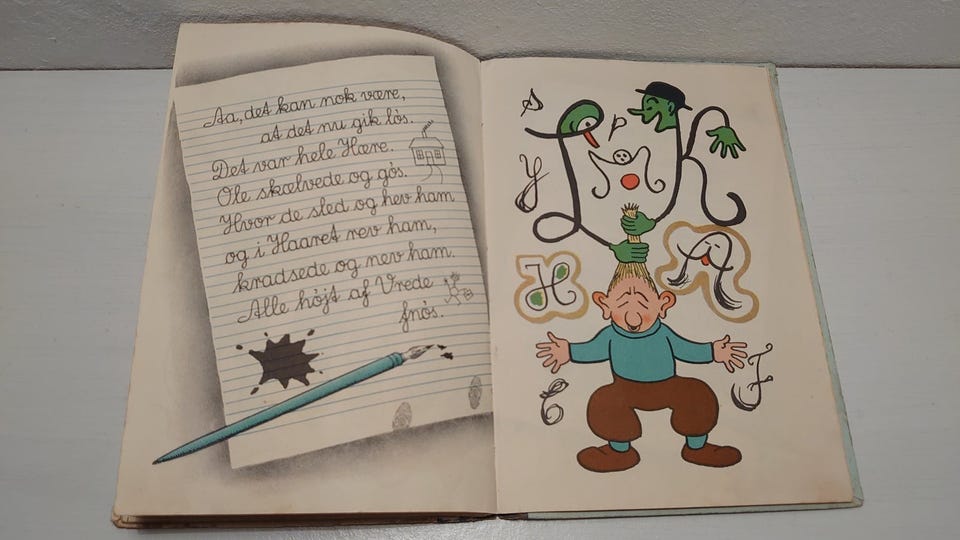 Aa, det kan nok være,
at det nu gik løs.
Det var hele Hære.
Ole skælvede og gøs.
Hvor de sled og hev ham
og i Haaret rev ham,
kradsede og nev ham.
Alle højt af Vrede
fnøs.
s
p
L
K
y
H
A
C
F